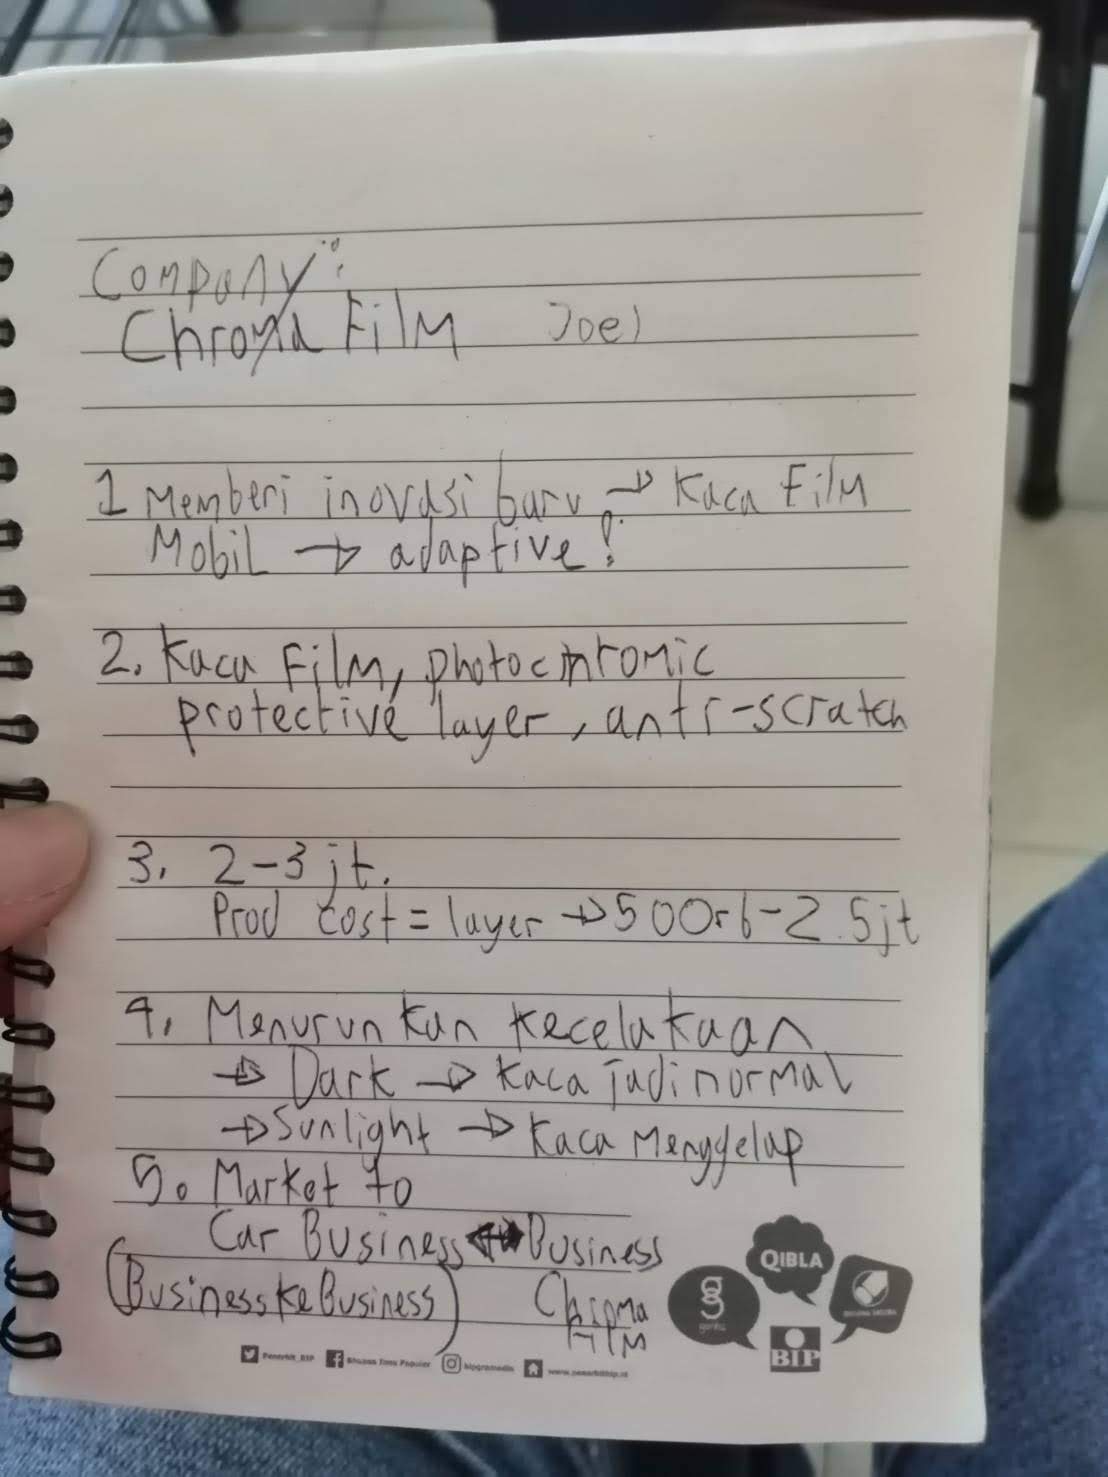 Company:
Chroma Film Joel
1 Memberi inovasi baru → Kaca Film
Mobil → adaptive!
2. Kaca Film, photochromic
protective layer, anti-scratch
3. 2-3 jt.
Prod cost = layer → 500rb - 2.5jt
4. Menurunkan kecelakaan
→ Dark → Kaca jadi normal
→ Sunlight → Kaca Menggelap
5. Market to
Car Business ↔ Business
(Business ke Business) Chroma
Film
QIBLA
BIP
Penerbit_BIP Bhuana Ilmu Populer bipgramedia www.penerbitbip.id